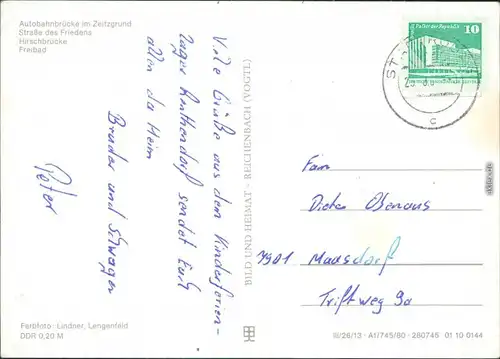 Autobahnbrücke im Zeitzgrund
Straße des Friedens
Hirschbrücke
Freibad
Viele Grüße aus dem Kinderferien-
lager Renthendorf sendet Euch
allen da Heim
Bruder und Schwager
Peter
BILD UND HEIMAT REICHENBACH (VOGTL)
Palast der Republik
10
DDR
ST
c
Fam
Dieter Obenaus
7901 Maasdorf
Triftweg 9a
Farbfoto: Lindner, Lengenfeld
DDR 0,20 M
III/26/13 · A1/745/80 · 280745 01 10 0144